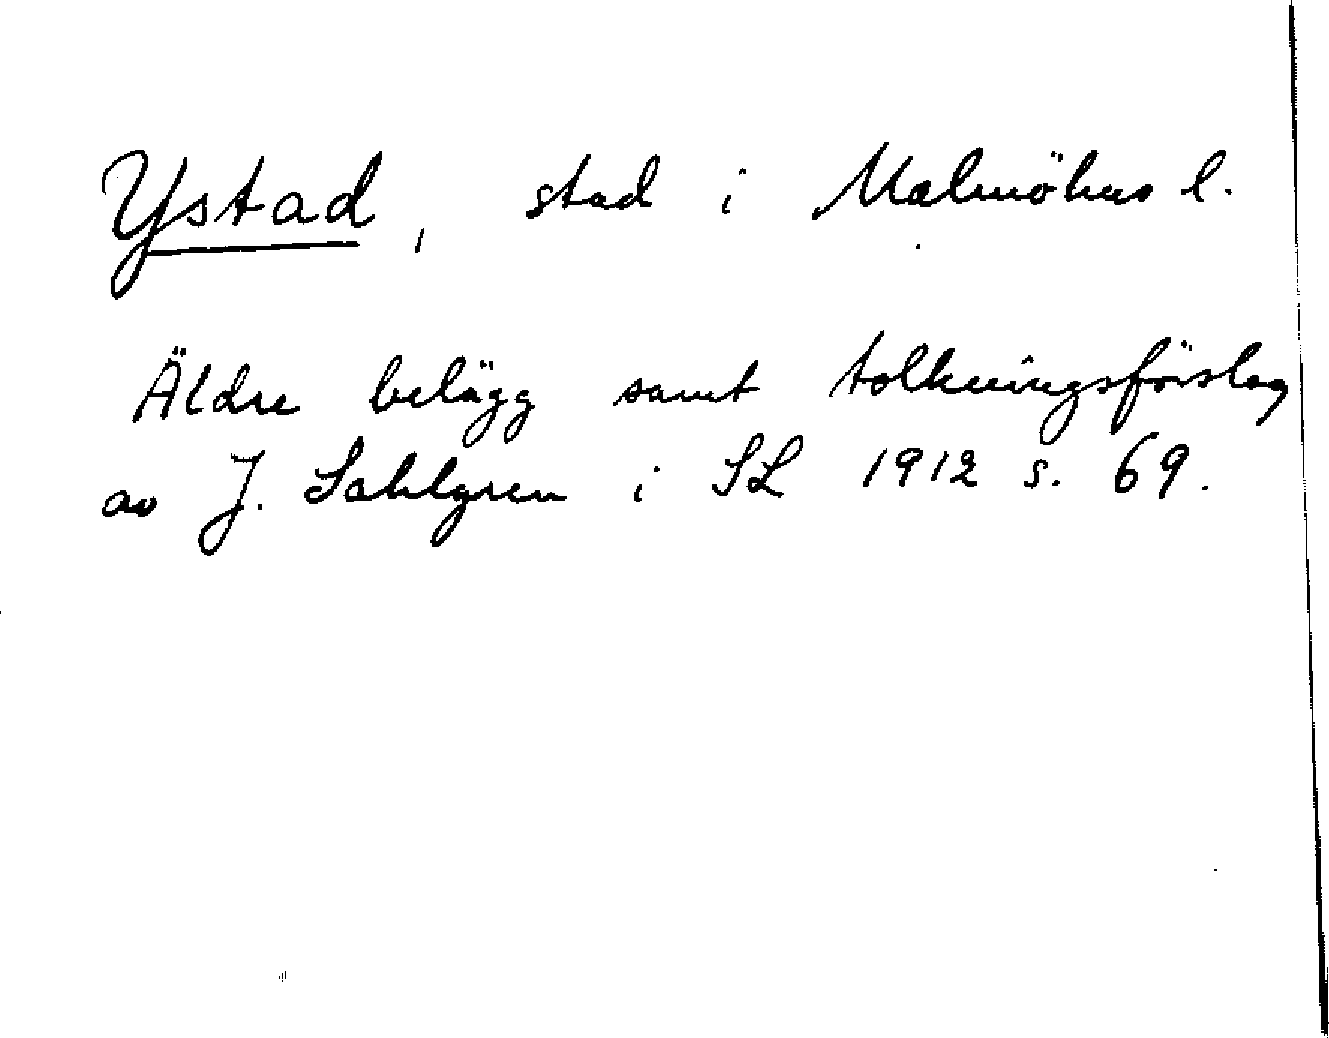 Ystad, stad i Malmöhus l.
Äldre belägg samt tolkningsförslag
av J. Sahlgren i SL 1912 s. 69.